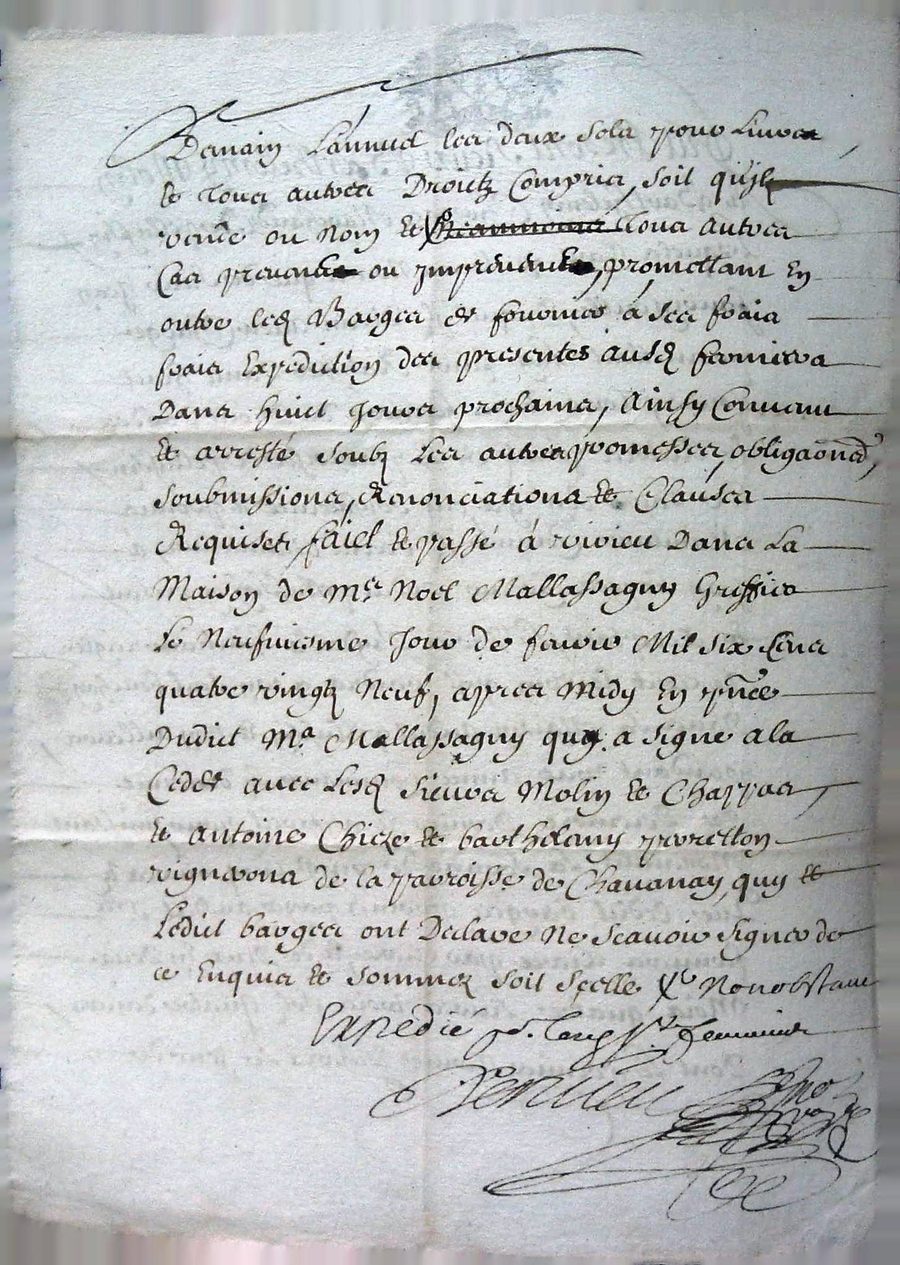 Demain L'annuel les deux sols pour Livre
et Tous autres Droictz Compris, soit qu'jlz
vienne ou Non Et Tous autres
Cas prevenus ou jmprevenus, promettant En
outre led Barges de fournir à ses frais
frais Expedition des presentes ausd fermiers
Dans huict Jours prochains, Ainsy Convenu
Et arresté soubz Les autres promesses, obligaons,
soubmissions, Renonciations Et Clauses
Requises, faict et passé à virieu Dans La
Maison de Mre Noel Mallassagny Greffier
Le Neufviesme Jour de fevrier Mil six Cens
quatre vingtz Neuf, apres midy En pnce
Dudict Mr Mallassagny quy a signe a la
Cedde avec Lesd sieurs Molin et Chappas,
Et antoine Chieze et barthelemy perretton
vignerons de la parroisse de Chavanay, quy et
Ledict barges ont Declare Ne scavoir signer de
ce Enquis et sommez soit scelle Nonobstant
Expedié pr. Lesd Srs. fermiers